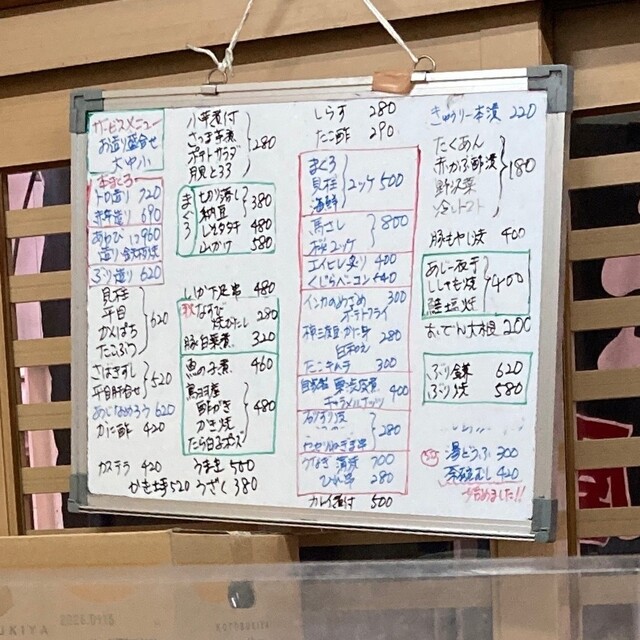 サービスメニュー
お造り盛合せ
大中小
本まぐろ
トロ造り 720
赤身造り 690
あわび 960
ぶり造り 620
貝柱
平目
かんぱち
たこぶつ
620
さばきずし
平目肝合せ
520
あじなめろう 620
かに酢 420
カステラ 420
小芋煮付
さつま芋煮
ポテトサラダ
月見とろろ
280
まぐろ
切り落し
納豆
380
480
山かけ 580
いか下足串 480
秋なすび
焼びたし 280
豚白菜煮 320
魚の子煮 460
鳥羽産
酢がき
かき焼
たら白子ポン
480
うまき 500
520 うざく 380
しらす 280
たこ酢 290
まぐろ
貝柱
海鮮
ユッケ 500
馬さし
桜ユッケ
800
エイヒレ炙り 400
くじらベーコン 640
インカのめざめ 300
ポテトフライ
かに身
白和え
280
たこキムチ 300
自家製 栗渋皮煮
キャラメルナッツ
400
280
うなぎ 蒲焼 700
ひれ串 280
カレイ煮付 500
きゅうり一本漬 220
たくあん
赤かぶ酢漬
野沢菜
冷しトマト
180
豚もやし炒 400
あじ一夜干
ししゃも焼
400
おでん大根 200
ぶり 620
ぶり 580
湯どうふ 300
茶碗むし 420
始めました!!
UKIYA
KOTOBUKIYA